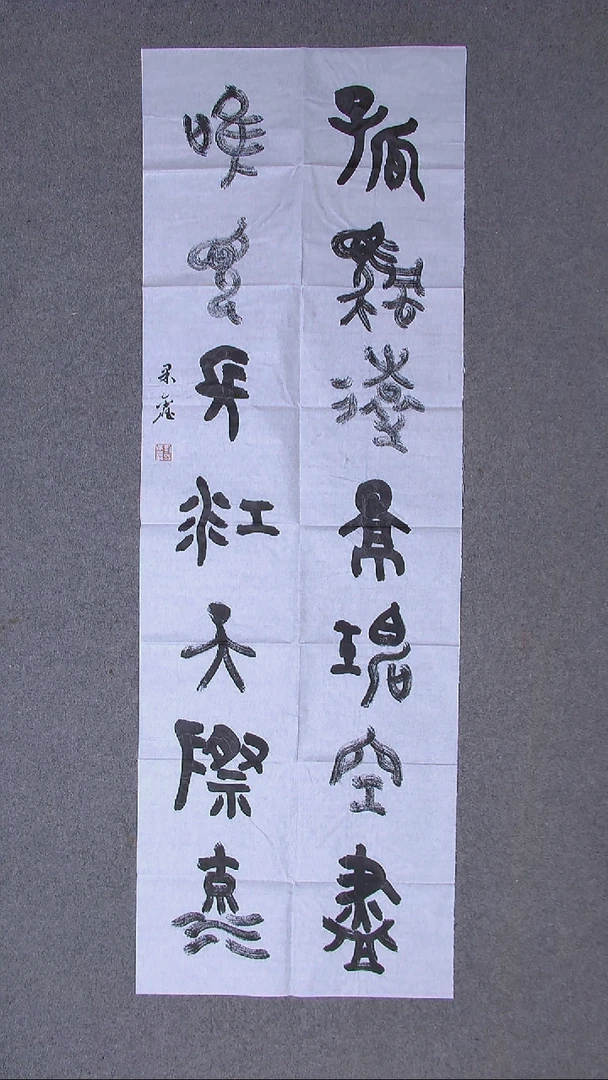 孤帆遠景碧空盡
唯見長江天際流